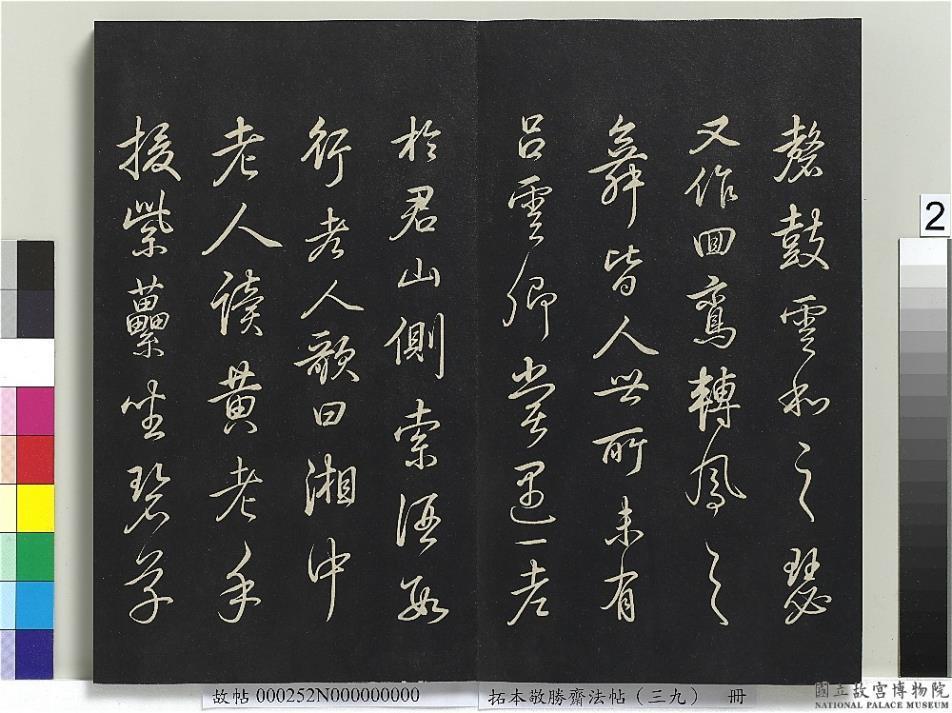 磬鼓雲和之瑟
又作回鸞轉鳳之
舞皆人世所未有
呂雲卿嘗遇一老
於君山側索酒數
行老人歌曰湘中
老人讀黃老手
援紫藟坐碧草
2
故帖 000252N000000000
拓本敬勝齋法帖（三九） 冊
國立故宮博物院
NATIONAL PALACE MUSEUM